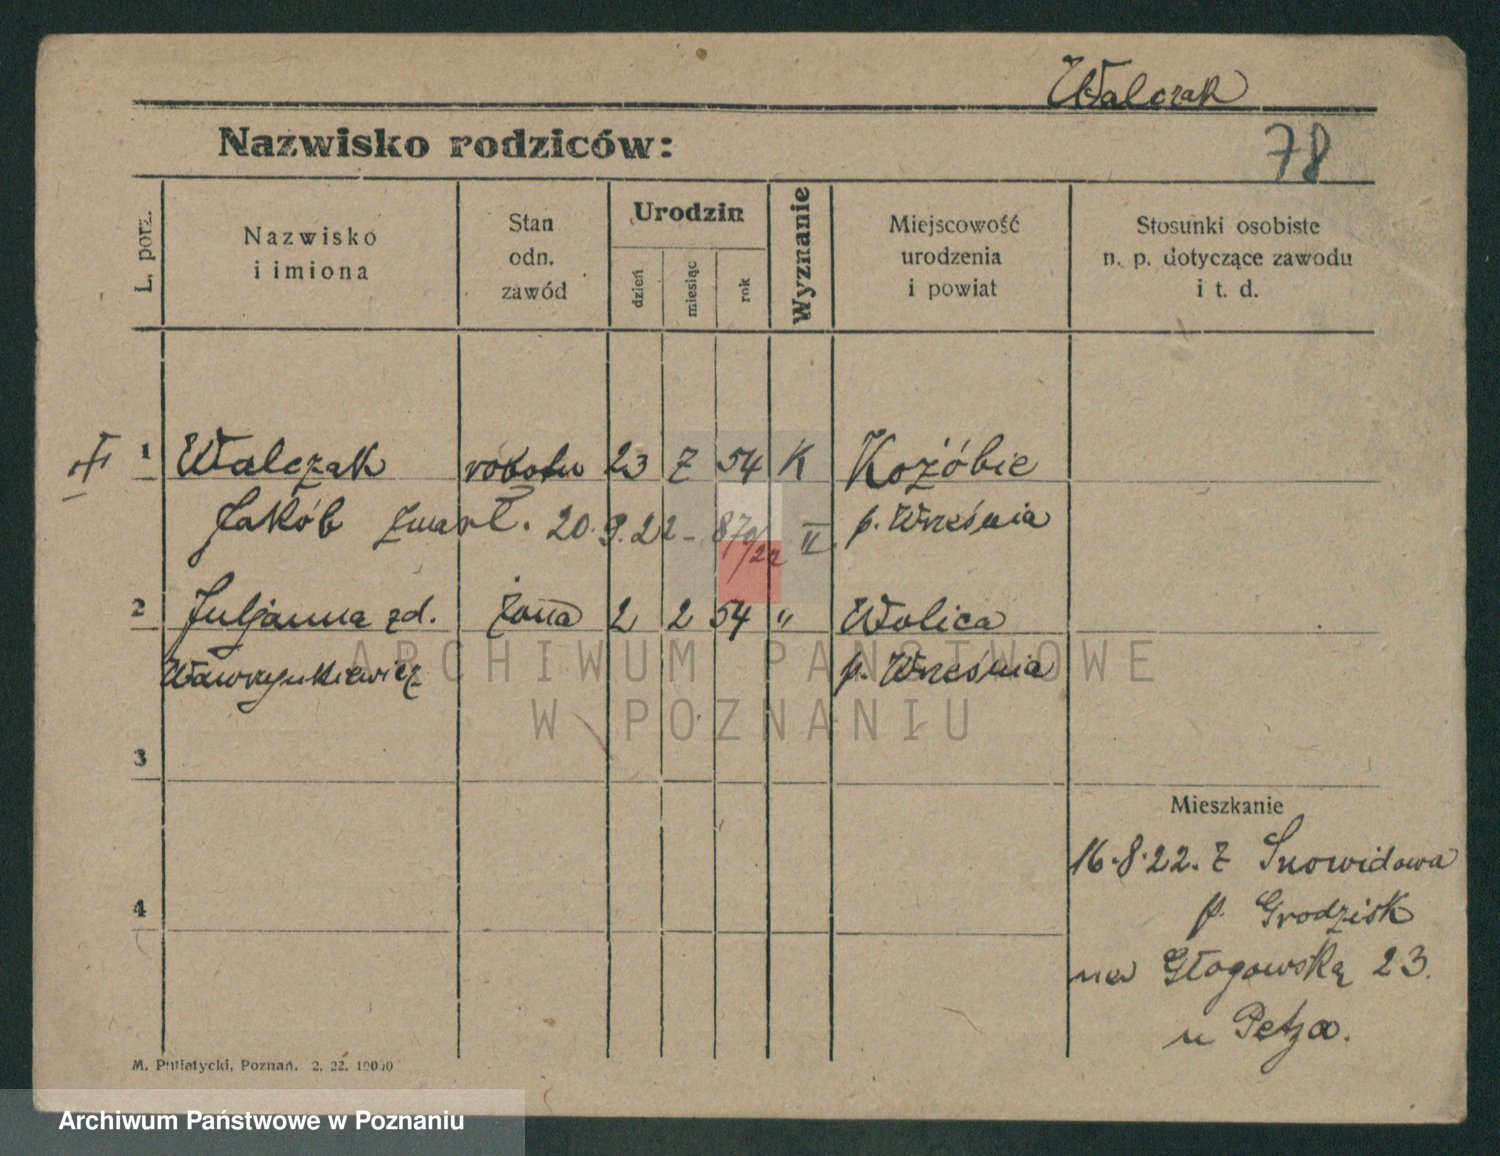 Walczak
Nazwisko rodziców:
78
L. porz.
Nazwisko
i imiona
Stan
odn.
zawód
Urodzin
dzień
miesiąc
rok
Wyznanie
Miejscowość
urodzenia
i powiat
Stosunki osobiste
n. p. dotyczące zawodu
i t. d.
1 Walczak robotn 23 7 54 K Kozóbie
Jakób zmarł. 20.9.22 - 870/22 II p. Września
2 Juljanna zd. żona 2 2 54 " Wolica
Wawrzynkiewicz p. Września
ARCHIWUM PAŃSTWOWE
W POZNANIU
3
Mieszkanie
16.8.22. z Snowidowa
4
p. Grodzisk
na Głogowską 23.
u Petza.
M. Putiatycki, Poznań. 2. 22. 10000
Archiwum Państwowe w Poznaniu